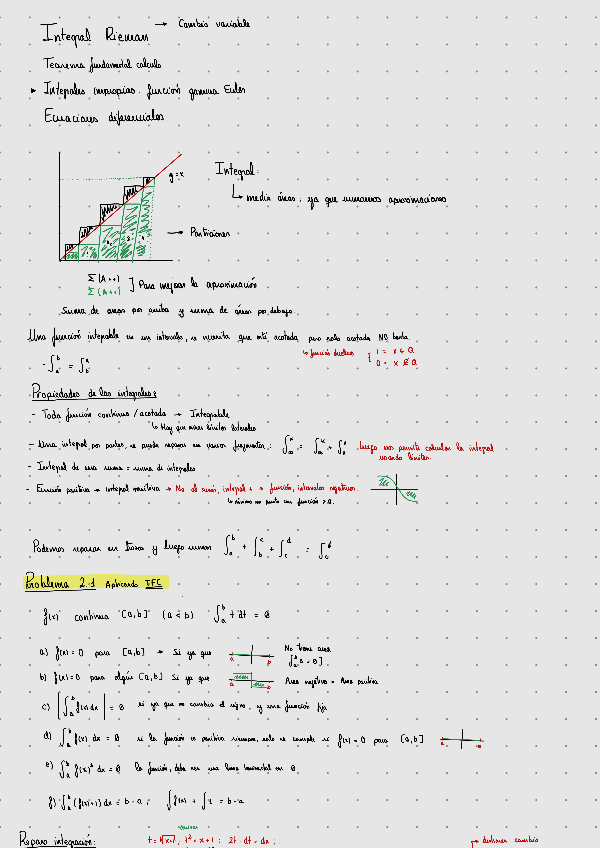 Integral Rieman → Cambio variable
Teorema fundamental calculo
▸ Integrales impropias. función gamma Euler
Ecuaciones diferenciales
y = x
Integral:
media áreas; ya que sumamos aproximaciones
→ Particiones
Σ (A++)
Σ (A++) ] Para mejorar la aproximación
Suma de areas por arriba y suma de áreas por debajo.
Una función integrable en un intervalo, se necesita que esté acotada, pero solo acotada NO basta.
1 = x ∈ Q
0 = x ∉ Q
-∫ₐᵇ = ∫ᵇₐ
Propiedades de las integrales:
- Toda función continua / acotada → Integrable
↳ Hay que mirar límites laterales
- Una integral por partes, se puede separar en varios fragmentos:
luego nos permite calcular la integral
usando límites.
- Integral de una suma = suma de integrales
- Función positiva → integral positiva → No al revés, integral + ≠ función, intervalos negativos.
Podemos separar en trozos y luego sumar ∫ₐᵇ + ∫ᵦᶜ + ∫ᶜᵈ = ∫ₐᵈ
Problema 2.1 Aplicando TFC
f(x) continua [a,b] (a < b) ∫ₐᵇ f dt = 0
a) f(x) = 0 para [a,b] → Si ya que
No tiene area
b) f(x) = 0 para algún [a,b] Si ya que
Area negativa = Area positiva
c) |∫ₐᵇ f(x) dx| = 0 si ya que no cambia el signo, y una función fija
d) ∫ₐᵇ f(x) dx = 0 si la función es positiva siempre, solo se cumple si f(x) = 0 para [a,b]
e) ∫ₐᵇ f(x)² dx = 0 la función, debe ser una linea horizontal en 0
f) ∫ₐᵇ (f(x)+1) dx = b-a ; ∫f(x) + ∫1 = b-a
Repaso integración:
t = √x+1, t² = x+1; 2t·dt = dx;
→ deshacer cambio